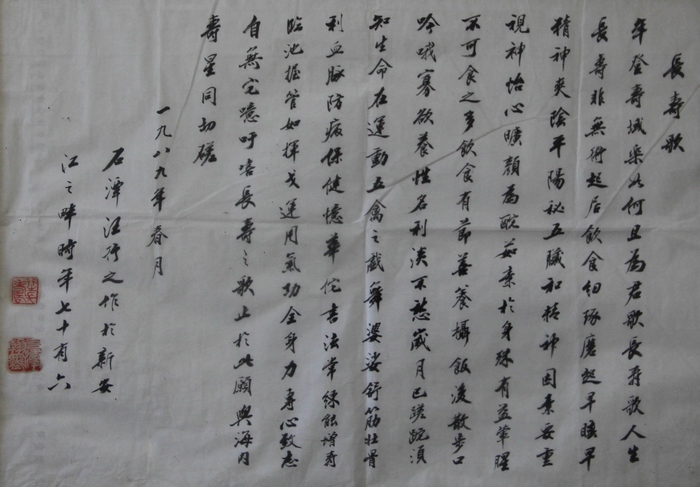 長壽歌
年登壽域樂如何且為君歌長壽歌人生
長壽非無術起居飲食細琢磨起早眠早
精神爽陰平陽秘五臟和精神因素要重
視神怡心曠顏為酡茹素於身殊有益葷腥
不可食之多飲食有節善養攝飯後散步口
吟哦寡欲養性名利淡不愁歲月已蹉跎須
知生命在運動五禽之戲舞婆娑舒筋壯骨
利血脈防疲保健憶華佗書法常練能增壽
臨池握管如揮戈運用氣功全身力專心致志
自無它噫吁嘻長壽之歌止於此願與海內
壽星同切磋
一九八九年春月
石潭汪行之作於新安
江之畔時年七十有六